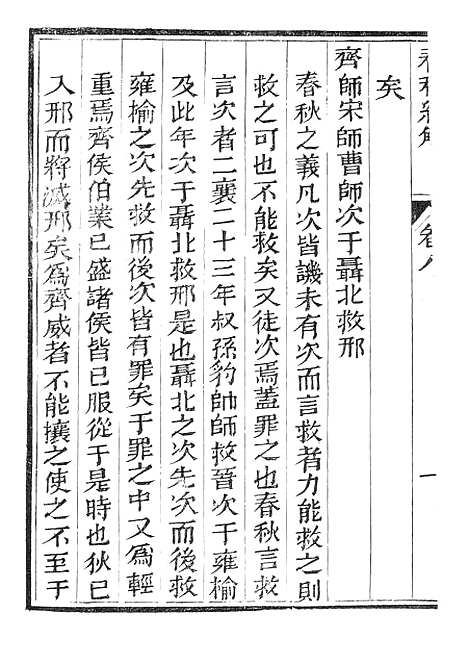 卷八
一
矣
齊師宋師曹師次于聶北救邢
春秋之義凡次皆譏未有次而言救者力能救之則
救之可也不能救矣又徒次焉蓋罪之也春秋言救
言次者二襄二十三年叔孫豹帥師救晉次于雍榆
及此年次于聶北救邢是也聶北之次先次而後救
雍榆之次先救而後次皆有罪矣于罪之中又爲輕
重焉齊侯伯業已盛諸侯皆已服從于是時也狄已
入邢而將滅邢矣爲齊威者不能攘之使之不至于